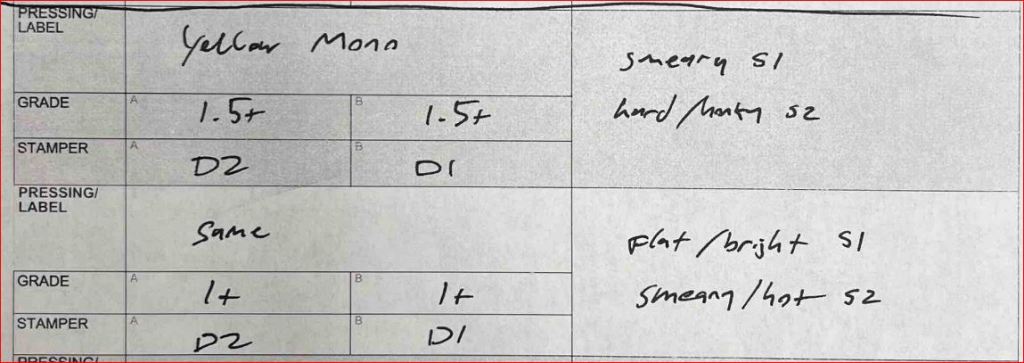 PRESSING/
LABEL
Yellow Mono
smeary S1
GRADE
A
1.5+
B
1.5+
hard/honky S2
STAMPER
A
D2
B
D1
PRESSING/
LABEL
same
Flat/bright S1
GRADE
A
1+
B
1+
smeary/hot S2
STAMPER
A
D2
B
D1
PRESSING/